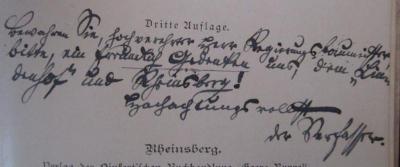 Dritte Auflage.
Bewahren Sie, hochverehrter Herr Regierungsbaumeister
bitte, ein freundlich Gedenken uns, dem „Lin-
denhof“ und Rheinsberg!
Hochachtungsvollst
der Verfasser.
Rheinsberg.
Verlag der